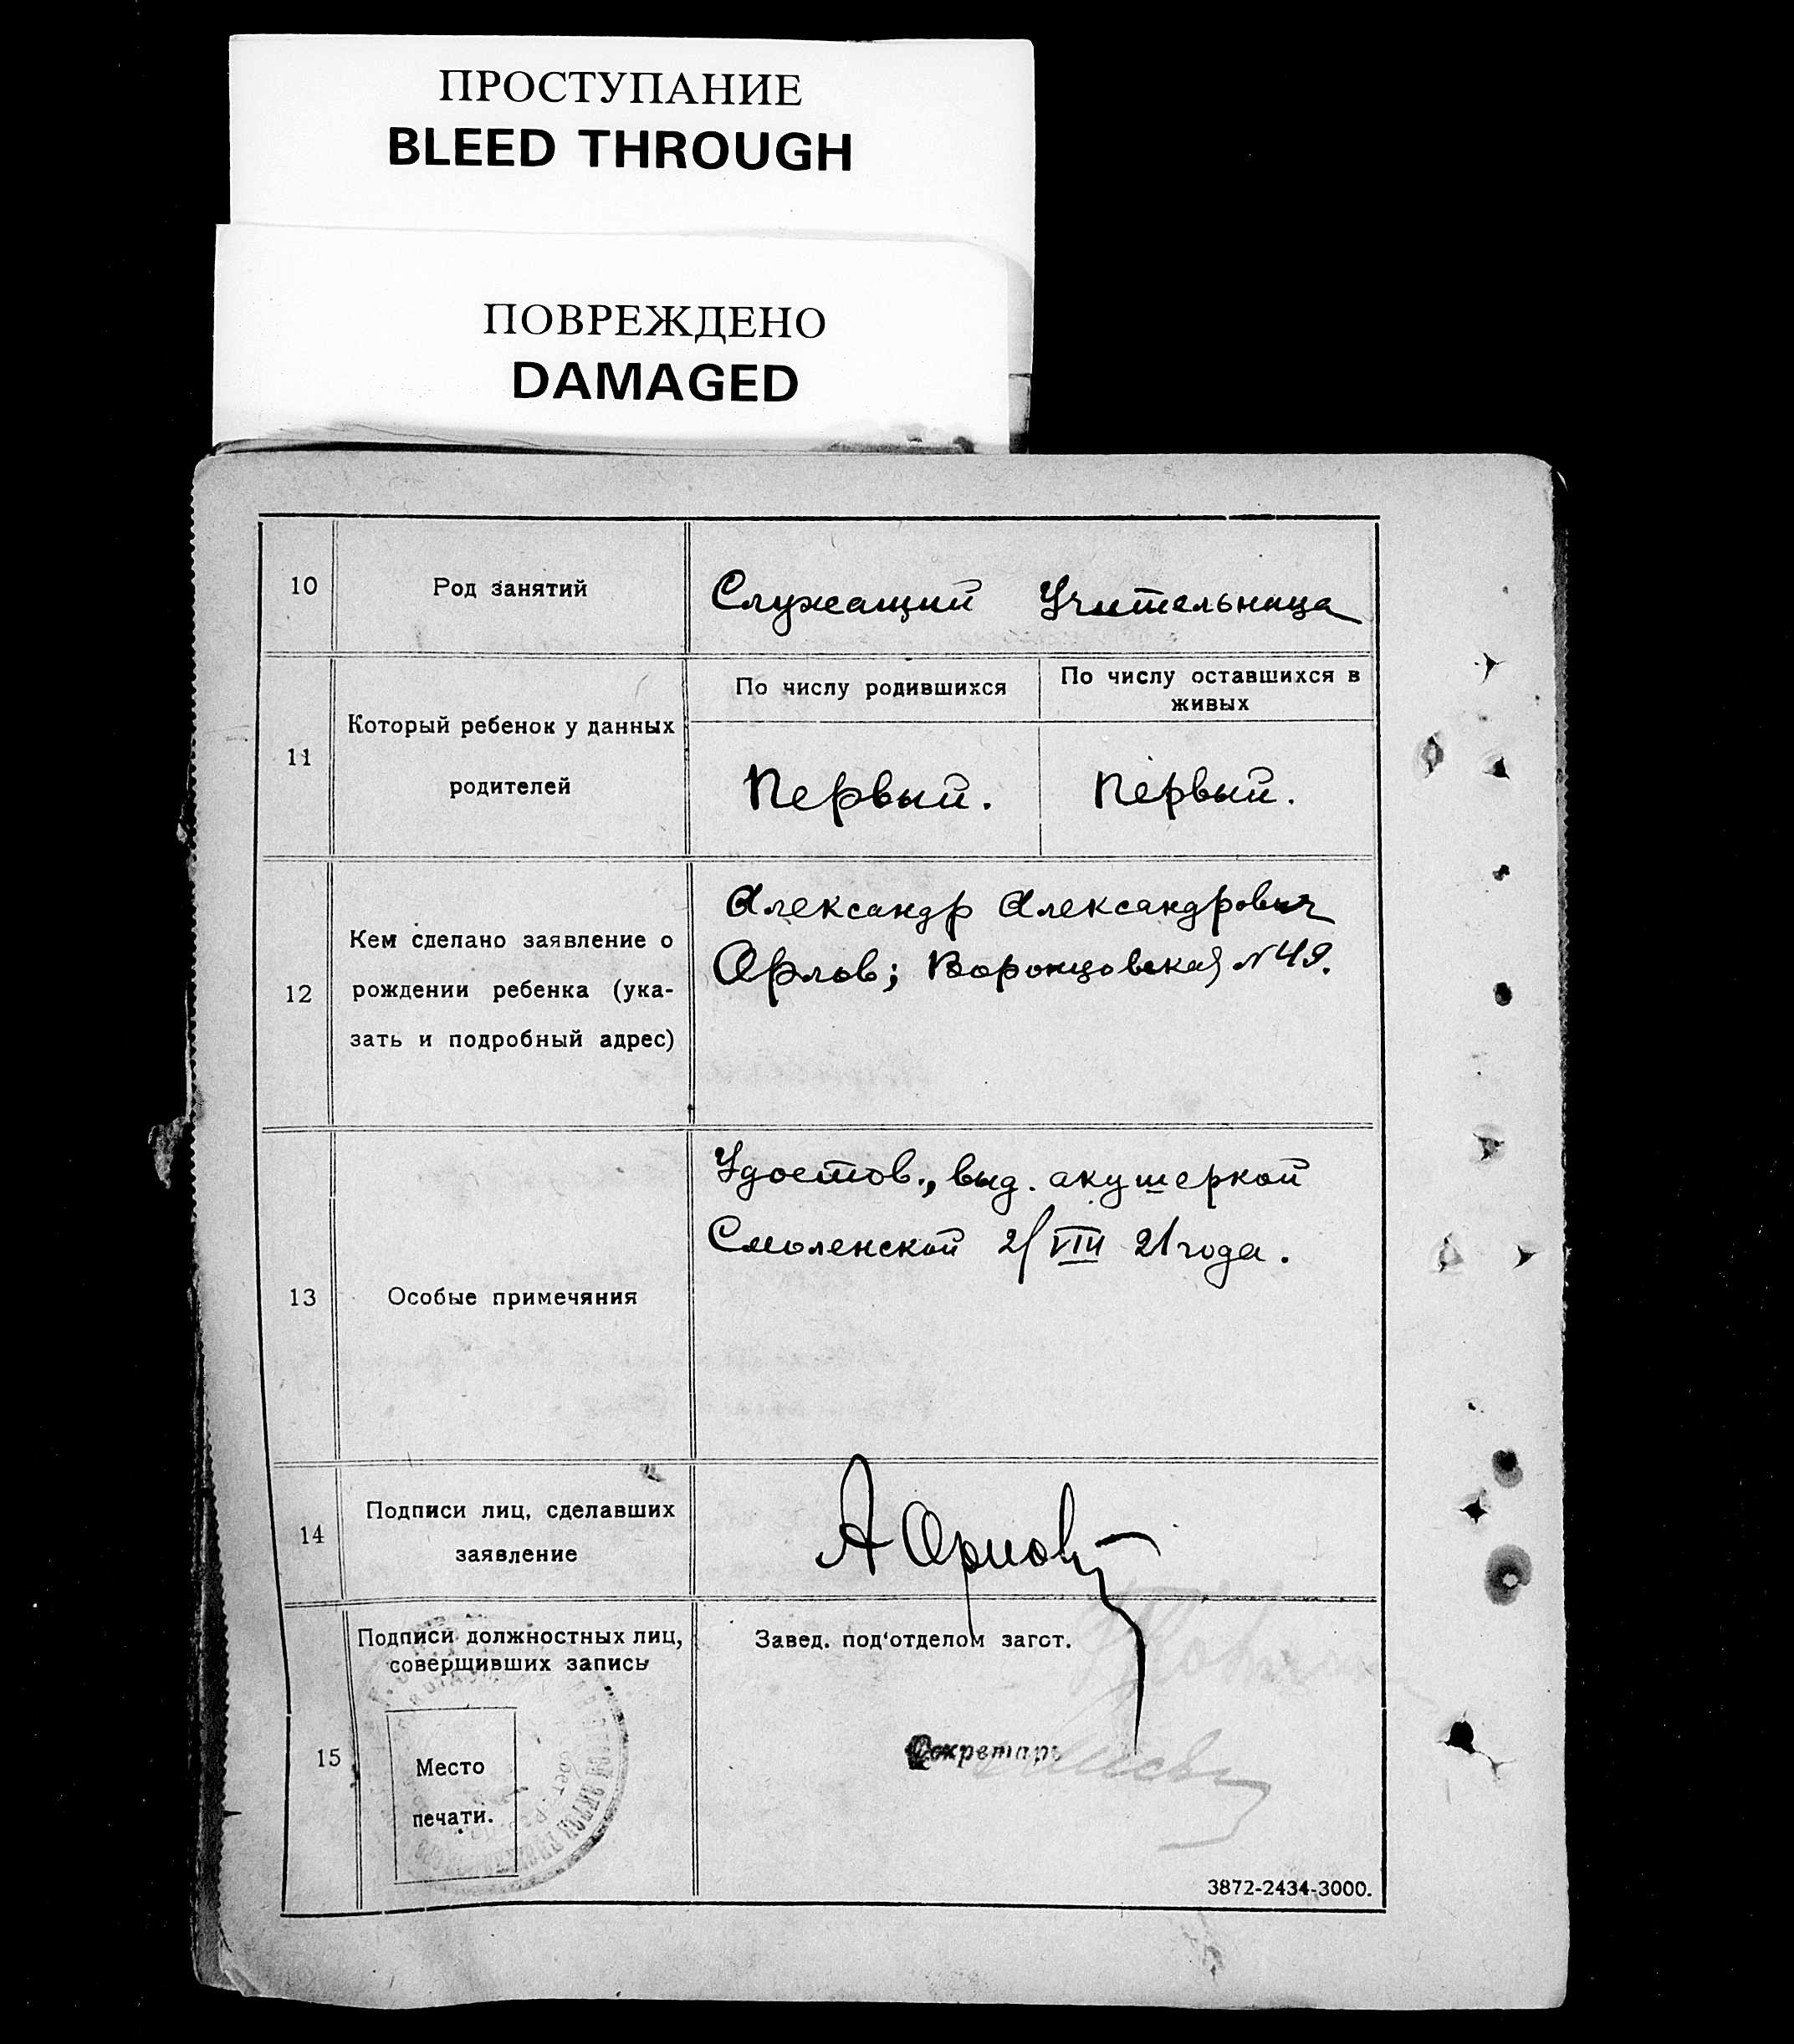 ПРОСТУПАНИЕ
BLEED THROUGH
ПОВРЕЖДЕНО
DAMAGED
10
Род занятий
Служащий Учительница
11
Который ребенок у данных
родителей
По числу родившихся
По числу оставшихся в
живых
Первый.
Первый.
12
Кем сделано заявление о
рождении ребенка (ука-
зать и подробный адрес)
Александр Александрович
Орлов; Воронцовская № 49.
13
Особые примечяния
Удостов., выд. акушеркой
Смоленской 2/VIII 21 года.
14
Подписи лиц, сделавших
заявление
А Орлов
15
Подписи должностных лиц,
соверщивших запись
Место
печати.
Завед. под'отделом загст.
Секретарь
3872-2434-3000.